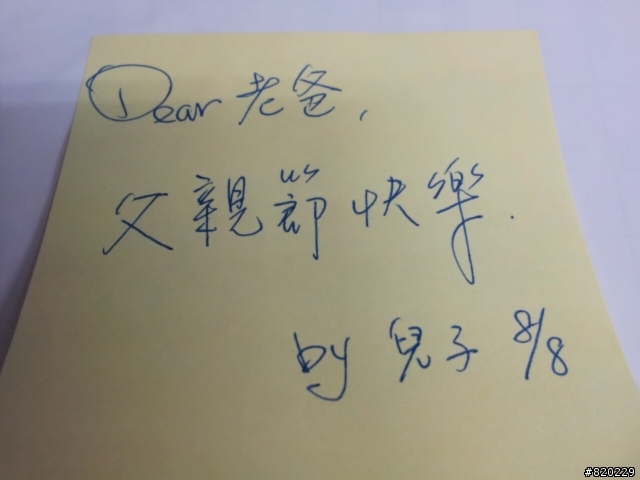 Dear 老爸,
父親節快樂.
by 兒子 8/8
#820229